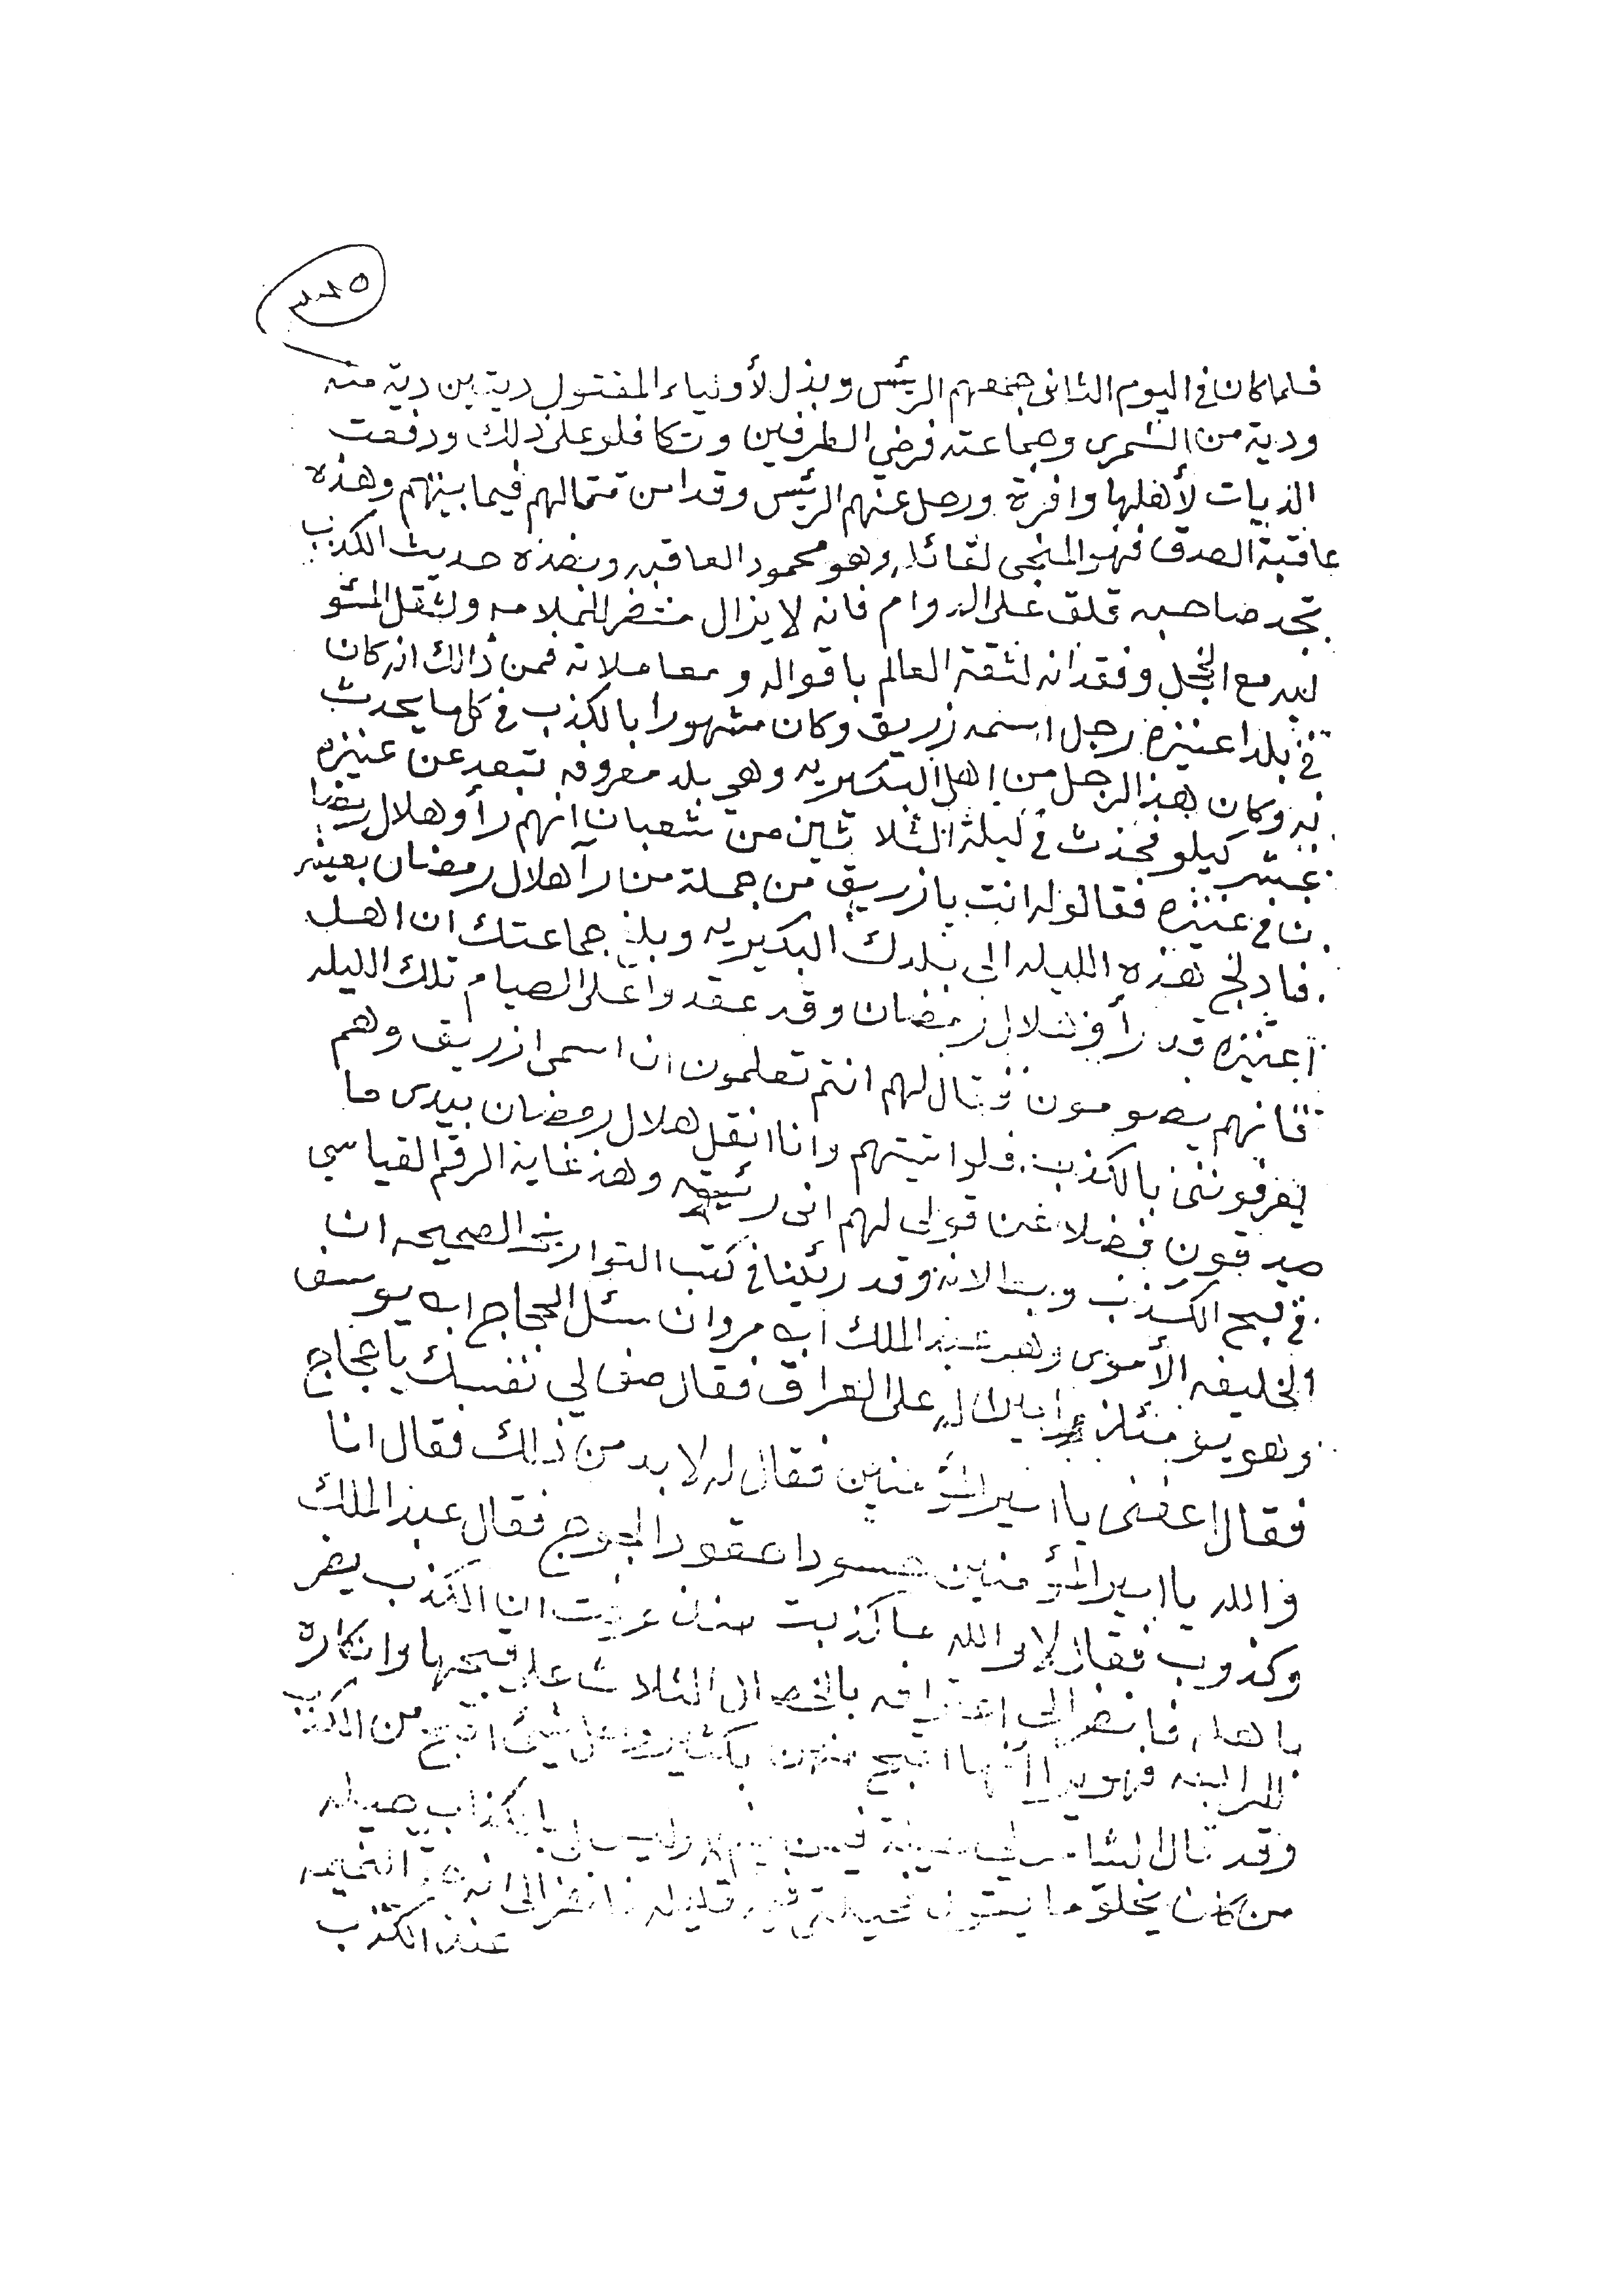 ٣٢٥
فلما كان في اليوم الثاني جمعهم الرئيس وبذل لأولياء المقتول ديتين دية منه
ودية من الشمري وجماعته فرضي الطرفين وتكافلو على ذلك ودفعت
الديات لأهلها وافرة ورحل عنهم الرئيس وقد امن قتالهم فيما بينهم وهذه
عاقبة الصدق فهو المنجي لقائله وهو محمود العاقبه وبضده حديث الكذب
تجد صاحبه قلق على الدوام فانه لا يزال منتضر للملامه ولثقل المسئو
ليه مع الخجل وفقدانه لثقة العالم باقواله ومعاملاته فمن ذالك انه كان
في بلد اعنيزه رجل اسمه زريق وكان مشهورا بالكذب في كل ما يحدث
به وكان هذا الرجل من اهل البكيريه وهي بلد معروفه تبعد عن عنيزه
عشر كيلو فحدث في ليلة الثلاثين من شعبان انهم رأو هلال رمضا
ن في عنيزه فقالو له انت يا زريق من جملة من رآ هلال رمضان بعينه
فادلج هذه الليله الى بلدك البكيريه وبلغ جماعتك ان اهل
اعنيزه قد رأو هلال رمضان وقد عقدوا على الصيام تلك الليله
فانهم يصومون فقال لهم انتم تعلمون ان اسمي ازريق وهم
يعرفونني بالكذب فلو اتيتهم وانا انقل هلال رمضان بيدي ما
صدقون فضلا عن قولي لهم اني رئيته وهذ غاية الرقم القياسي
في قبح الكذب وبطالانه وقد رئينا في كتب التواريخ الصحيحه ان
الخليفه الأموي وهو عبد الملك ابن مروان سئل الحجاج ابن يوسف
وهو يومئذ على العراق فقال صف لي نفسك يا حجاج
فقال اعفني يا امير المؤمنين فقال له لا بد من ذلك فقال انا
والله يا امير المؤمنين حسودا حقودا لجوج فقال عبد الملك
وكذوب فقال لا والله ما كذبت منذ عرفت ان الكذب يضر
باهله فانضر الى اعترافه بالخصال الثلاث على قبحها وانكاره
للرابعه فهو يرا أنها اقبح منهن بكثير شيئ اقبح من الكذب
وقد قال الشاعر لي حيلة فيمن ينم وليس لي بالكذاب حيله
من كان يخلق ما يقول فحيلتي فيه قليله فانضر الى انه
عند الكذب